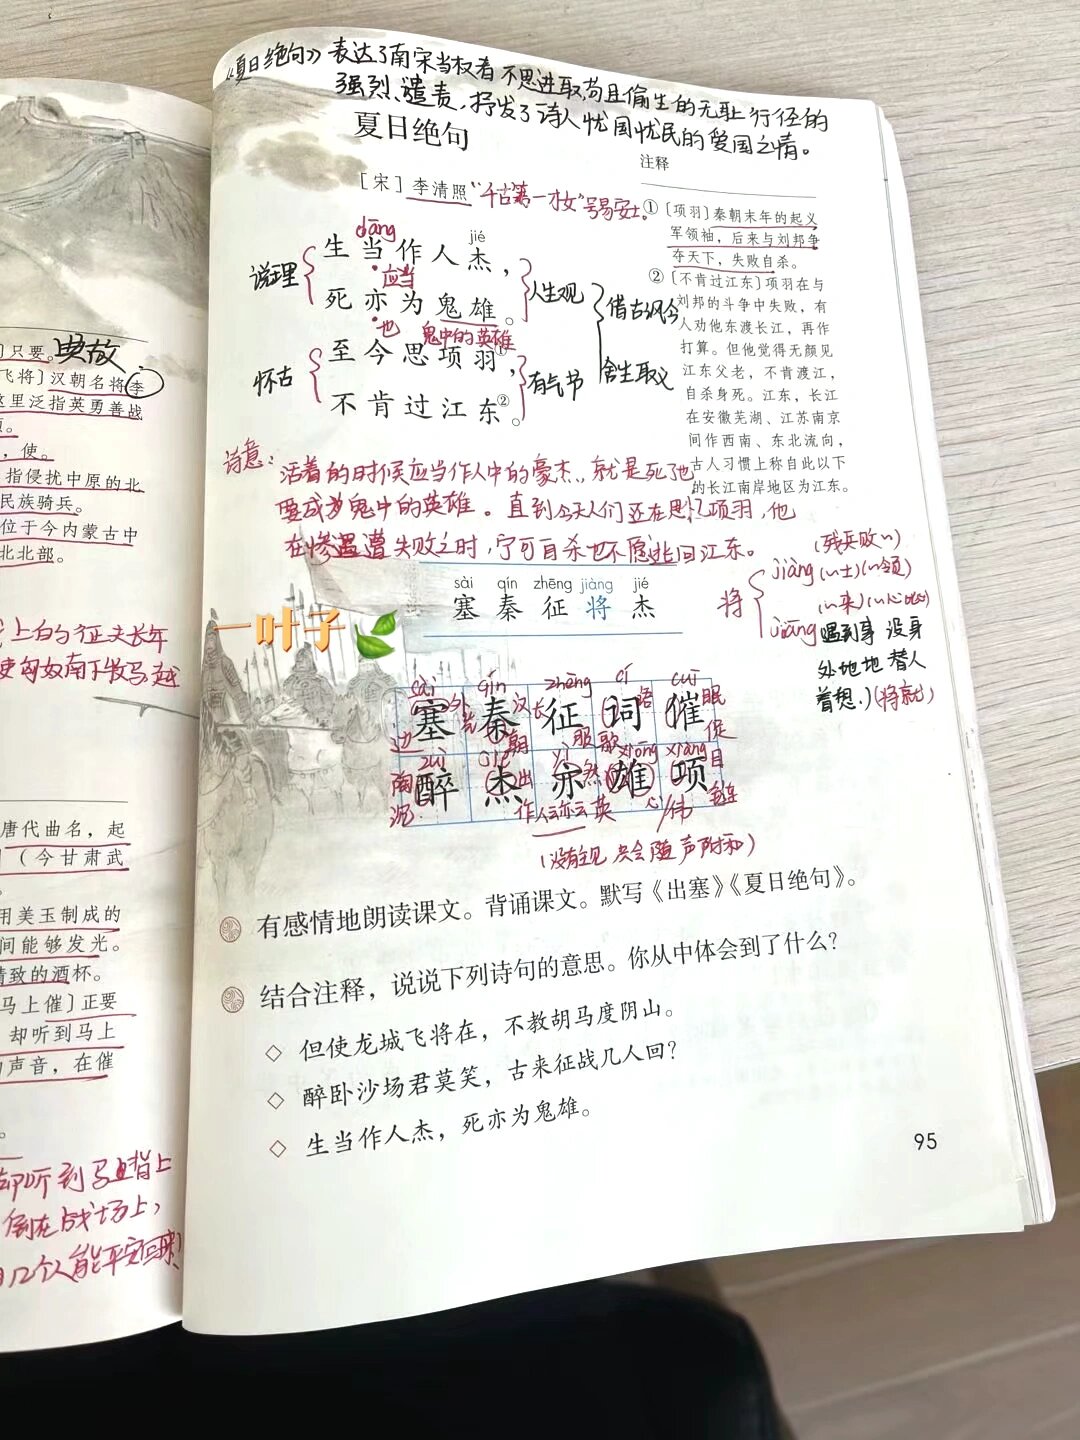 《夏日绝句》表达了南宋当权者不思进取,苟且偷生的无耻行径的
强烈谴责,抒发了诗人忧国忧民的爱国之情。
夏日绝句
[宋]李清照"千古第一才女"号易安士。
dāng
jié
生当作人杰,
应当
死亦为鬼雄。
也 鬼中的英雄
至今思项羽①,
不肯过江东②。
说理
怀古
人生观
有气节
借古讽今
舍生取义
注释
①〔项羽〕秦朝末年的起义
军领袖,后来与刘邦争
夺天下,失败自杀。
②〔不肯过江东〕项羽在与
刘邦的斗争中失败,有
人劝他东渡长江,再作
打算。但他觉得无颜见
江东父老,不肯渡江,
自杀身死。江东,长江
在安徽芜湖、江苏南京
间作西南、东北流向,
古人习惯上称自此以下
的长江南岸地区为江东。
诗意:活着的时候应当作人中的豪杰,就是死了也
要成为鬼中的英雄。直到今天人们还在思忆项羽,他
在惨遇遭失败之时,宁可自杀也不愿逃回江东。
sài qín zhēng jiàng jié
塞 秦 征 将 杰
将
(残兵败〃)
jiàng(〃士)(〃领)
jiāng
遇到事 没身
处地地替人
着想.)(将就)
一叶子
sài qín zhēng cí cuī
塞 秦 征 词 催
边 外 先 朝 汉 长 服 歌 语 眠 促
zuì jié yì xióng xiàng
醉 杰 亦 雄 项
陶 泥 出 作 然 人云亦云 英 心 伟 目 链
(没有主见 只会随声附和)
有感情地朗读课文。背诵课文。默写《出塞》《夏日绝句》。
结合注释,说说下列诗句的意思。你从中体会到了什么?
◇ 但使龙城飞将在,不教胡马度阴山。
◇ 醉卧沙场君莫笑,古来征战几人回?
◇ 生当作人杰,死亦为鬼雄。
95
只要。典故
飞将〕汉朝名将李
这里泛指英勇善战
,使。
指侵扰中原的北
民族骑兵。
位于今内蒙古中
北北部。
上的征夫长年
使匈奴南下牧马越
唐代曲名,起
(今甘肃武
用美玉制成的
间能够发光。
精致的酒杯。
马上催〕正要
却听到马上
声音,在催
却听到马上背上
倒在战场上,
几个人能平安回来!